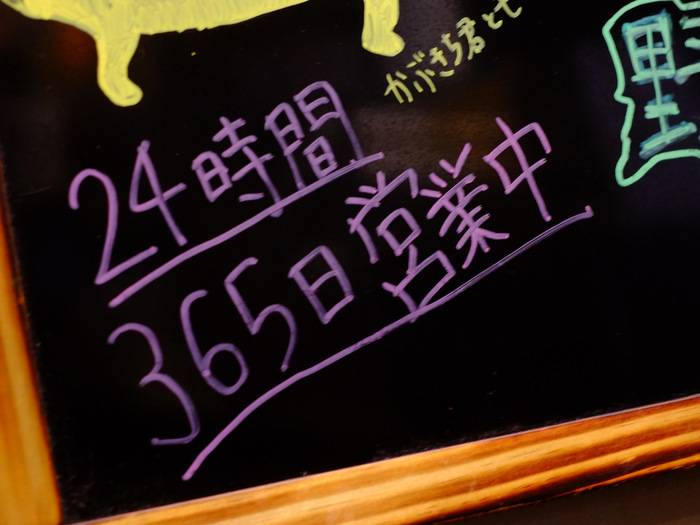 かぶきち君とモ
24時間
365日営業中
野